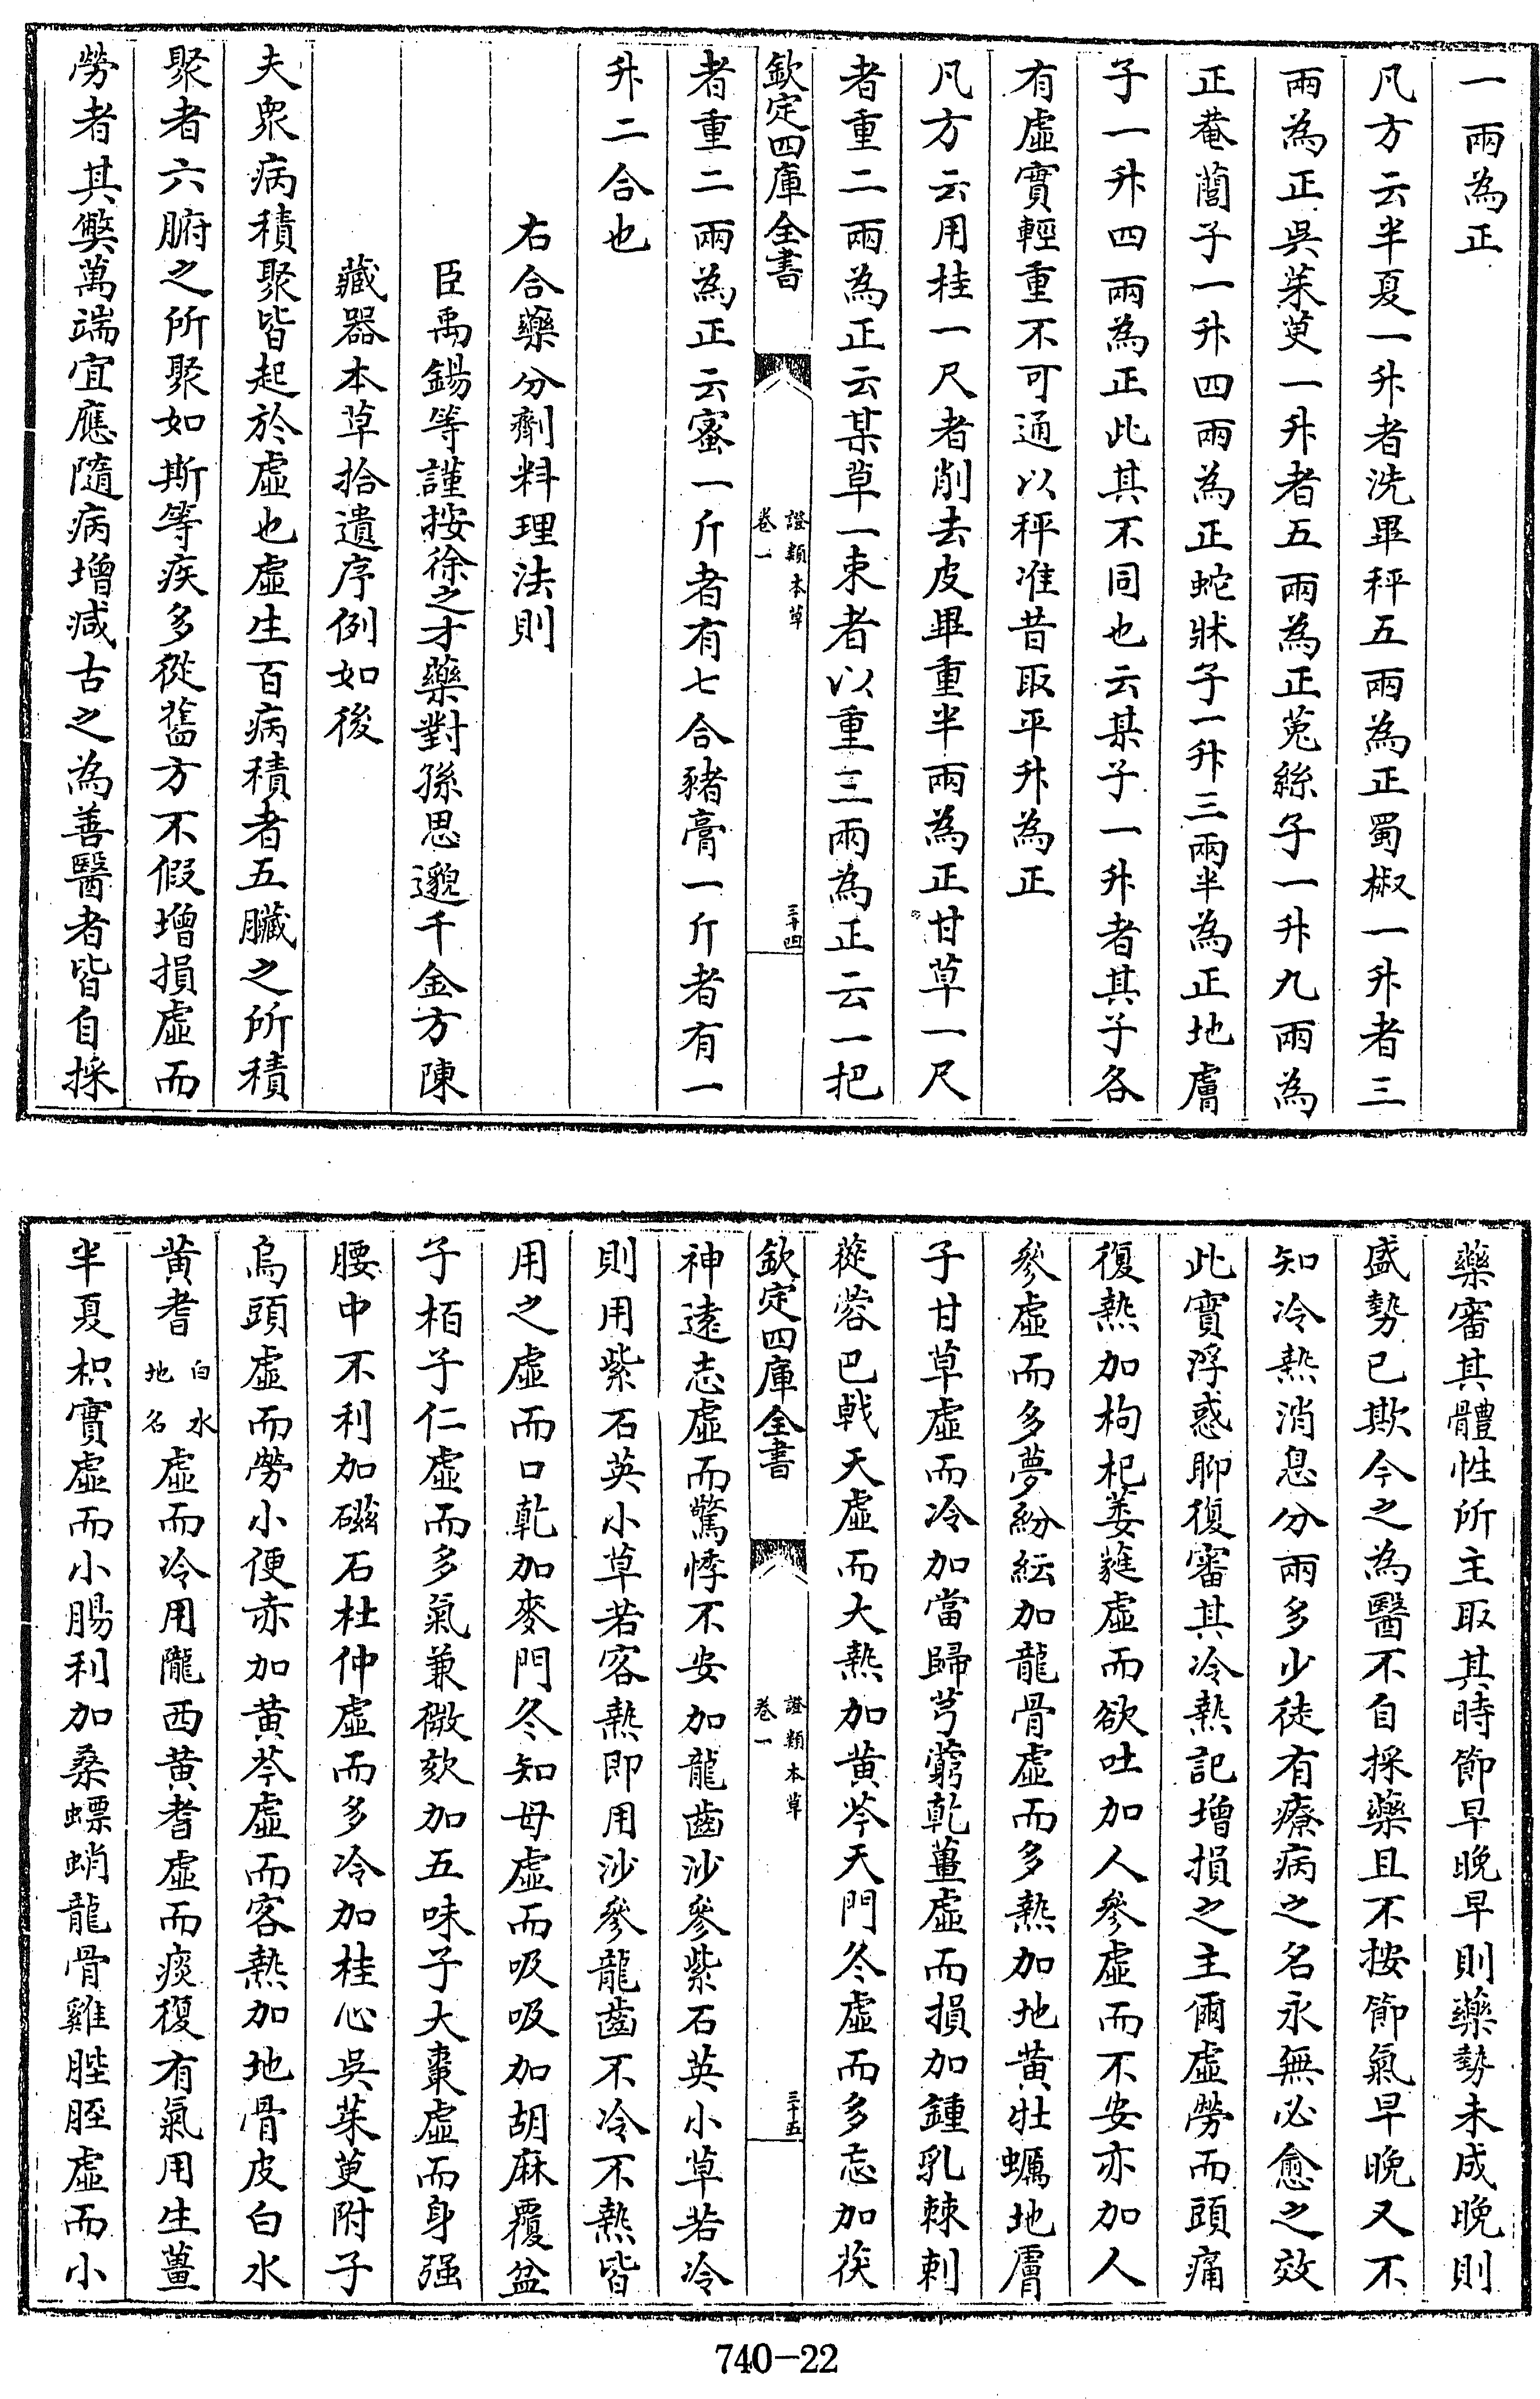 一兩為正
凡方云半夏一升者洗畢秤五兩為正蜀椒一升者三
兩為正吳茱萸一升者五兩為正菟絲子一升九兩為
正菴䕡子一升四兩為正蛇牀子一升三兩半為正地膚
子一升四兩為正此其不同也云某子一升者其子各
有虛實輕重不可通以秤准昔取平升為正
凡方云用桂一尺者削去皮畢重半兩為正甘草一尺
者重二兩為正云某草一束者以重三兩為正云一把
欽定四庫全書
證類本草
卷一
三十四
者重二兩為正云蜜一斤者有七合豬膏一斤者有一
升二合也
右合藥分劑料理法則
臣禹錫等謹按徐之才藥對孫思邈千金方陳
藏器本草拾遺序例如後
夫衆病積聚皆起於虛也虛生百病積者五臟之所積
聚者六腑之所聚如斯等疾多從舊方不假增損虛而
勞者其弊萬端宜應隨病增減古之為善醫者皆自採
藥審其體性所主取其時節早晚早則藥勢未成晚則
盛勢已欺今之為醫不自採藥且不按節氣早晚又不
知冷熱消息分兩多少徒有療病之名永無必愈之效
此實浮惑聊復審其冷熱記增損之主爾虛勞而頭痛
復熱加枸杞萎蕤虛而欲吐加人參虛而不安亦加人
參虛而多夢紛紜加龍骨虛而多熱加地黄牡蠣地膚
子甘草虛而冷加當歸芎藭乾薑虛而損加鍾乳棘刺
蓯蓉巴戟天虛而大熱加黄芩天門冬虛而多忘加茯
欽定四庫全書
證類本草
卷一
三十五
神遠志虛而驚悸不安加龍齒沙參紫石英小草若冷
則用紫石英小草若客熱即用沙參龍齒不冷不熱皆
用之虛而口乾加麥門冬知母虛而吸吸加胡麻覆盆
子栢子仁虛而多氣兼微欬加五味子大棗虛而身强
腰中不利加磁石杜仲虛而多冷加桂心吳茱萸附子
烏頭虛而勞小便赤加黄芩虛而客熱加地骨皮白水
黄耆白水地名虛而冷用隴西黄耆虛而痰復有氣用生薑
半夏枳實虛而小腸利加桑螵蛸龍骨雞肶胵虛而小
740-22